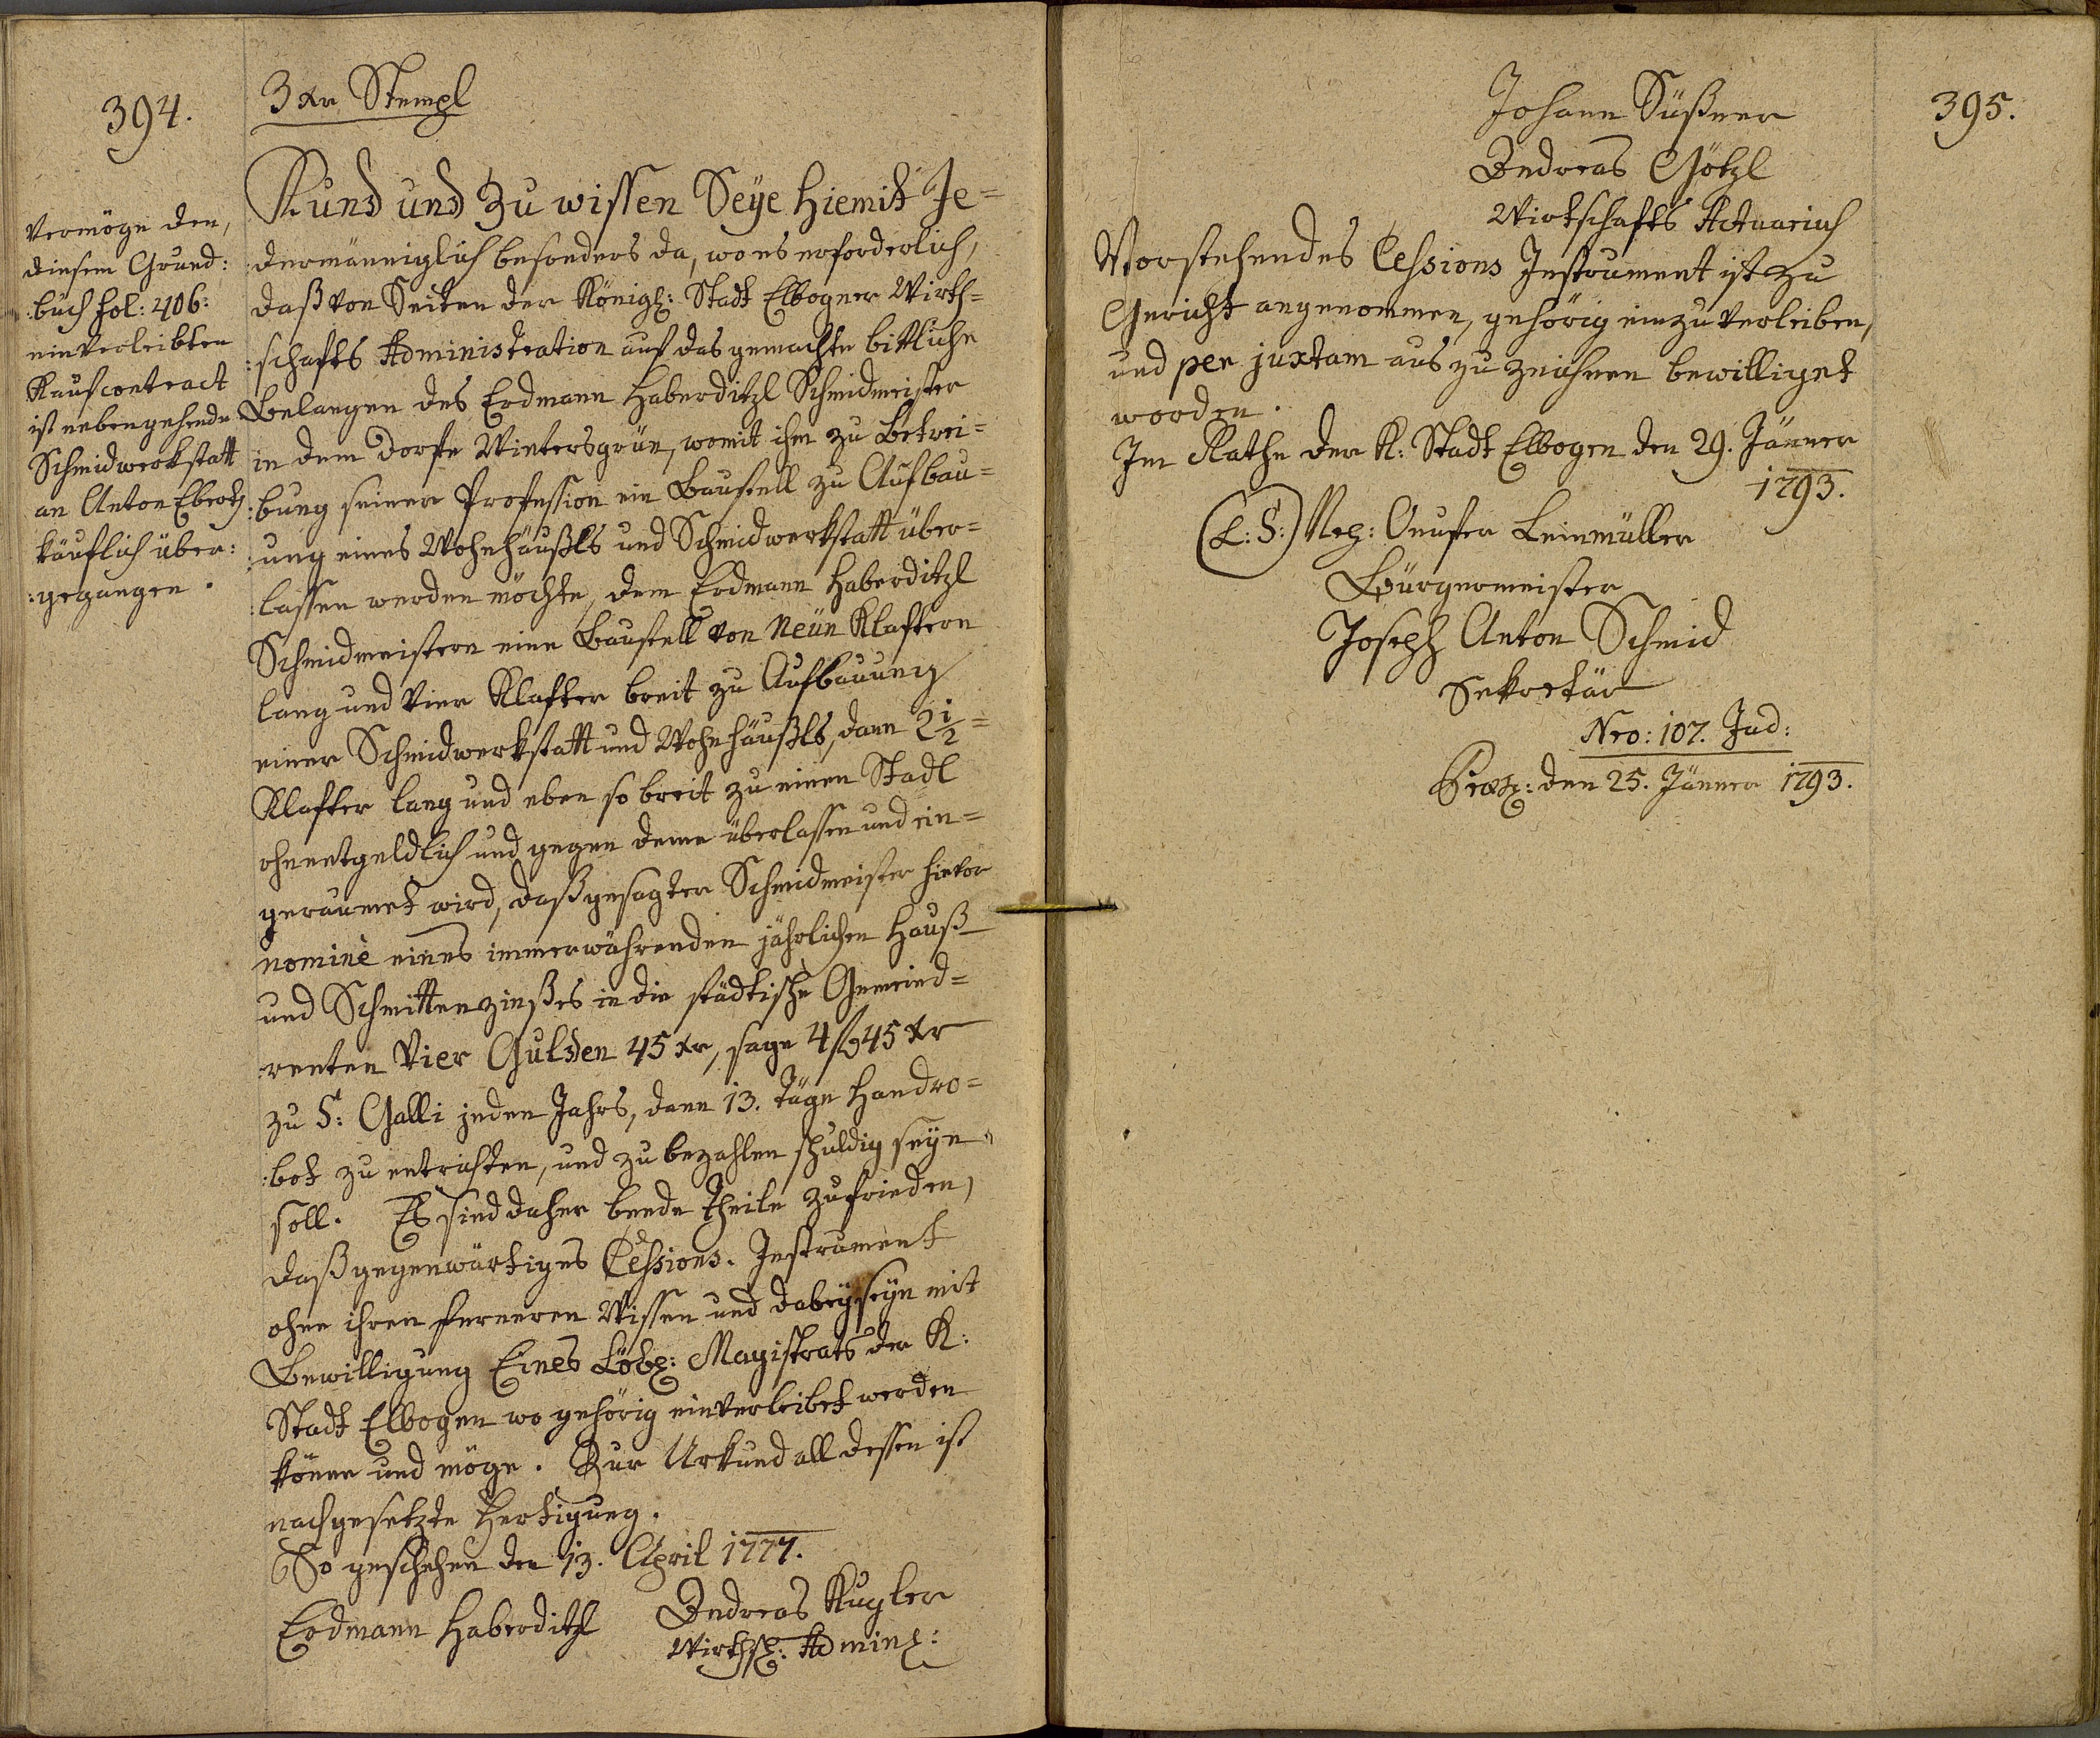 394.
3 xr Stempl
Vermöge den,
diesem Grund:
:buch fol: 406:
einverleibten
Kaufcontract
ist nebengehende
Schmidwerkstatt
an Anton Ebertz
käuflich über:
:gegangen.
Kund und Zu wissen Seÿe hiemit Je=
:dermänniglich besonders da, wo es erforderlich,
daß von Seiten der Königl: Stadt Elbogner Wirth=
:schafts Administration auf das gemachte bittliche
Belangen des Erdmann Haberditzl Schmidmeister
in dem Dorfe Wintersgrün, womit ihm zu Betrei=
:bung seiner Profession ein Baustell zu Aufbau=
:ung eines Wohnhäußls und Schmidwerkstatt über=
:lassen werden möchte, dem Erdmann Haberditzl
Schmidmeistern eine Baustell von Neün Klaftern
lang und Vier Klafter breit zu Aufbauung
einer Schmidwerkstatt und Wohnhäußls, dann 2 1/2=
Klafter lang und eben so breit zu einen Stadl
ohnentgeldlich und gegen deme überlassen und ein=
geraumet wird, daß gesagter Schmidmeister hievor
nominè eines immerwährenden jährlichen Hauß
und Schmittenzinßes in die städtische Gemeind=
:renten Vier Gulden 45 xr, sage 4 f 45 xr
zu S: Galli jeden Jahrs, dann 13. Täge Handro=
:bot zu entrichten, und zu bezahlen schuldig seÿn
soll. Es sind daher beede Theile zufrieden,
daß gegenwärtiges Cessions-Instrument
ohne ihren ferneren Wissen und dabeÿseÿn mit
Bewilligung Eines Löbl: Magistrats der K:
Stadt Elbogen wo gehörig einverleibet werden
könne und möge. Zur Urkund all dessen ist
nachgesetzte Fertigung.
So geschehen den 13. April 1777.
Erdmann Haberditzl
Andreas Kugler
Wirthschl: Adminl:
395.
Johann Süßner
Andreas Götzl
Wirtschafts Actuarius
Vorstehendes Cessions Instrument ist zu
Gericht angenommen, gehörig einzuverleiben,
und per juxtam aus zu zeichnen bewilliget
worden.
Im Rathe der K: Stadt Elbogen den 29. Jänner
1793.
(L: S:) Nep: Onufer Leinmüller
Bürgermeister
Joseph Anton Schmid
Sekretär
Nro: 107. Jud:
Præs: den 25. Jänner 1793.